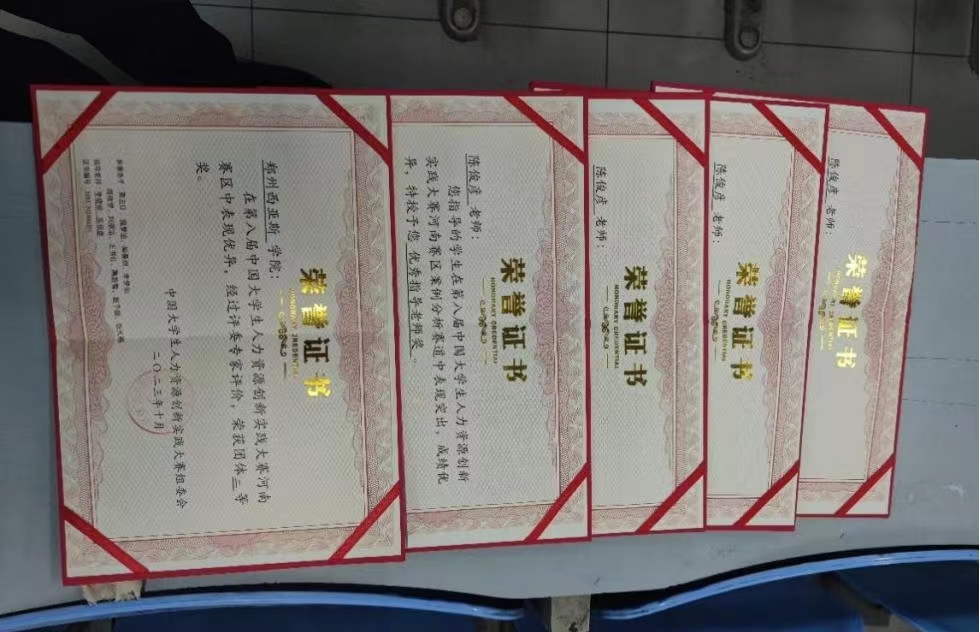 荣誉证书
HONORARY CREDENTIAL
郑州西亚斯 学院：
在第八届中国大学生人力资源创新实践大赛河南
赛区中表现优异，经过评委专家评价，荣获团体三等
奖。
中国大学生人力资源创新实践大赛组委会
二〇二三年十月
荣誉证书
HONORARY CREDENTIAL
陈俊彦 老师：
您指导的学生在第八届中国大学生人力资源创新
实践大赛河南赛区案例分析赛道中表现突出，成绩优
异，特授予您 优秀指导老师奖
荣誉证书
HONORARY CREDENTIAL
陈俊彦 老师：
荣誉证书
HONORARY CREDENTIAL
陈俊彦 老师：
荣誉证书
HONORARY CREDENTIAL
陈俊彦 老师：